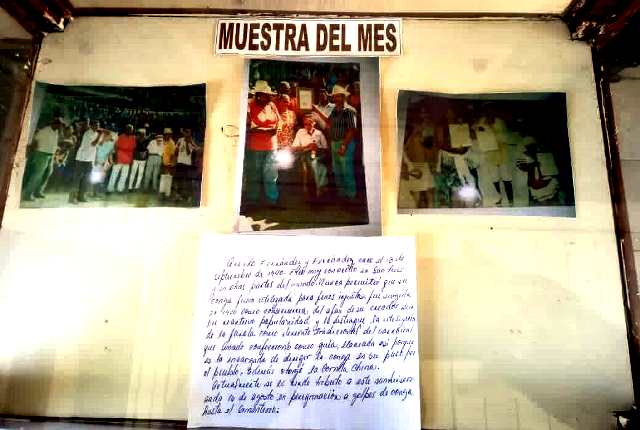 MUESTRA DEL MES
Fernández y Fernández nace el 13 de
septiembre de 1940. Fue muy conocido en San Luis
y en otras partes del mundo. Nunca permitió que su
conga fuera utilizada para fines injustos fue surgida
en 1960 como consecuencia del afán de su creador
su popularidad y la distingue la
de la farola como elemento tradicional del carnaval
como guía, llamada así porque
es la encargada de dirigir la conga en su paso por
el pueblo, además la corneta china.
Actualmente se le rinde tributo a este
cada 14 de agosto en peregrinación a golpes de conga
hasta el cementerio.